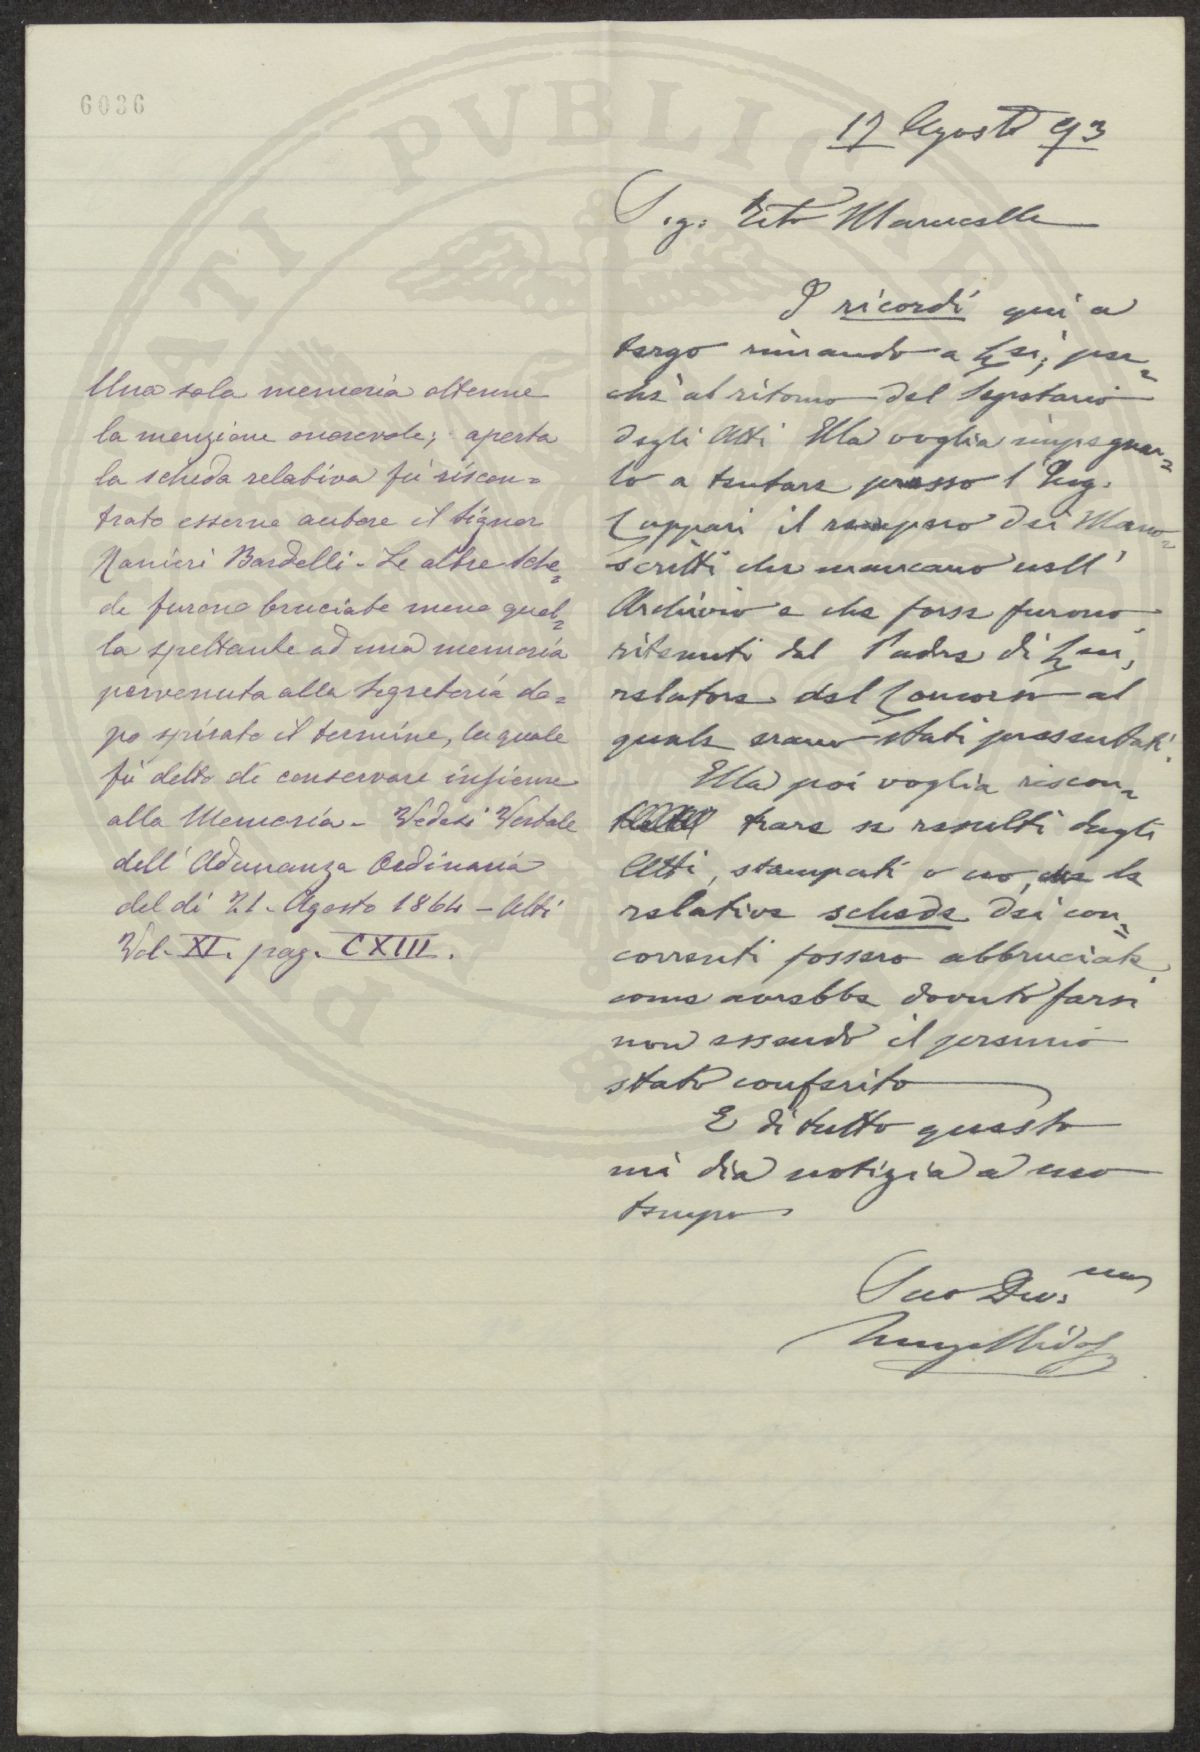 6036
17 Agosto 93
Sig. Tito Marucelli
I ricordi qui a
tergo rimando a Lei; per=
chè al ritorno del Segretario
degli Atti Ella voglia impegnar=
lo a tentare presso l'Ing.
Cappari il recupero dei Mano=
scritti che mancano nell'
Archivio e che forse furono
ritenuti dal Padre di Lui,
relatore del Concorso al
quale erano stati presentati.
Ella poi voglia riscon=
trare se resulti dagli
Atti, stampati o no, che le
relative schede dei con=
correnti fossero abbruciate
come avrebbe dovuto farsi
non essendo il premio
stato conferito
E di tutto questo
mi dia notizia a suo
tempo
Suo Dev.mo
Una sola memoria ottenne
la menzione onorevole; aperta
la scheda relativa fù riscon=
trato esserne autore il Signor
Ranieri Bardelli - Le altre Sche=
de furono bruciate meno quel=
la spettante ad una memoria
pervenuta alla Segreteria do=
po spirato il termine, la quale
fù detto di conservare insieme
alla Memoria - Vedesi Verbale
dell'Adunanza Ordinaria
del dì 21 - Agosto 1864 - Atti
Vol. XI. pag. CXIII.
PATI PUBLICAE